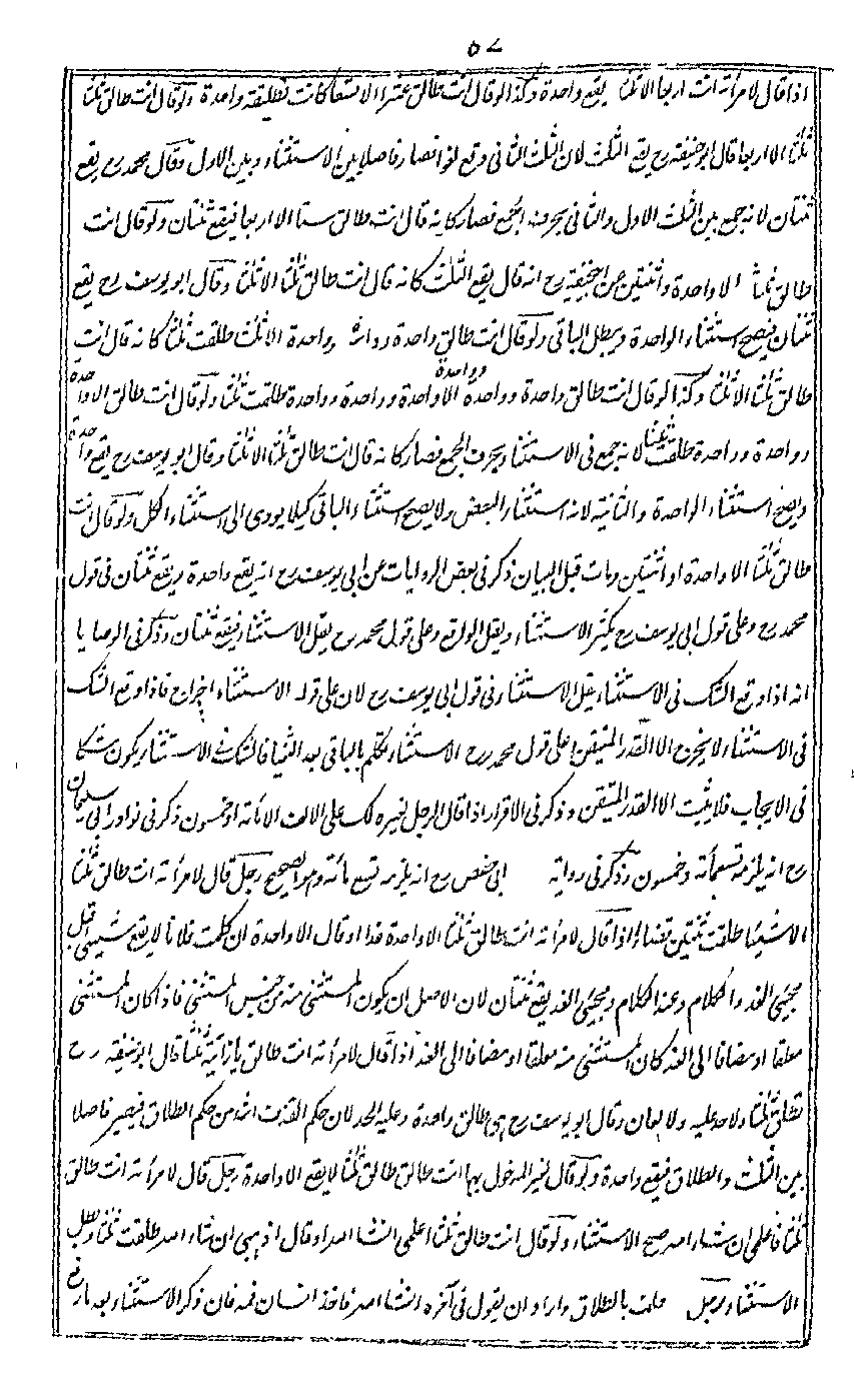 ٥٧
اذا قال لامرأته انت اربعا الا ثلثا يقع واحدة وكذا لو قال انت طالق عشرا الا تسعا كانت تطليقة واحدة ولو قال انت طالق ثلثا
ثلثا الا اربعا قال ابو حنيفة رح يقع الثلث لان الثلث الثانى وقع لغوا فصار فاصلا بين الاستثناء وبين الاول وقال محمد رح يقع
ثنتان لانه جمع بين الثلث الاول والثانى بحرف الجمع فصار كانه قال انت طالق ستا الا اربعا فيقع ثنتان ولو قال انت
طالق ثلثا الا واحدة واثنتين عن ابيحنيفة رح انه قال يقع الثلث كانه قال انت طالق ثلثا الا ثلثا وقال ابو يوسف رح يقع
ثنتان فيصح استثناء الواحدة ويبطل الباقى ولو قال انت طالق واحدة وواحدة وواحدة الا ثلث طلقت ثلثا كانه قال انت
طالق ثلثا الا ثلثا وكذا لو قال انت طالق واحدة وواحدة وواحدة الا واحدة وواحدة وواحدة طلقت ثلثا ولو قال انت طالق الا واحدة
وواحدة وواحدة طلقت ثلثا لانه جمع فى الاستثناء بحرف الجمع فصار كانه قال انت طالق ثلثا الا ثلثا وقال ابو يوسف رح يقع واحدة
ويصح استثناء الواحدة والثانية لانه استثناء البعض ولا يصح استثناء الباقى كيلا يودى الى استثناء الكل ولو قال انت
طالق ثلثا الا واحدة او اثنتين ومات قبل البيان ذكر فى بعض الروايات عن ابى يوسف رح انه يقع واحدة ويقع ثنتان فى قول
محمد رح وعلى قول ابى يوسف رح يكثر الاستثناء ويقل الواقع وعلى قول محمد رح يقل الاستثناء فيقع ثنتان وذكر فى الوصايا
انه اذا وقع الشك فى الاستثناء يقل الاستثناء فى قول ابى يوسف رح لان على قوله الاستثناء اخراج فاذا وقع الشك
فى الاستثناء لا يخرج الا القدر المتيقن اما على قول محمد رح الاستثناء تكلم بالباقى بعد الثنيا فالشك فى الاستثناء يكون شكا
فى الايجاب فلا يثبت الا القدر المتيقن وذكر فى الاقرار اذا قال الرجل لغيره لك على الف الا مائة او خمسون ذكر فى نوادر ابى سليمان
رح انه يلزمه تسعمائة وخمسون وذكر فى رواية ابى حفص رح انه يلزمه تسع مائة وهو الصحيح رجل قال لامرأته انت طالق ثلثا
الا شيئا طلقت ثنتين قضاء اذا قال لامرأته انت طالق ثلثا الا واحدة غدا او قال الا واحدة ان كلمت فلانا لا يقع شيئ قبل
مجيئ الغد والكلام وعند الكلام ومجيئ الغد يقع ثنتان لان الاصل ان يكون المستثنى منه من جنس المستثنى فاذا كان المستثنى
معلقا او مضافا الى الغد كان المستثنى منه معلقا او مضافا الى الغد اذا قال لامرأته انت طالق يا زانية ثلثا قال ابو حنيفة رح
تطلق ثلثا ولا حد عليه ولا لعان وقال ابو يوسف رح هى طالق واحدة وعليه الحد لان حكم القذف اشد من حكم الطلاق فيصير فاصلا
بين الثلث والطلاق فيقع واحدة ولو قال لغير المدخول بها انت طالق طالق ثلثا لا يقع الا واحدة رجل قال لامرأته انت طالق
ثلثا فاعلمى ان شاء الله صح الاستثناء ولو قال انت طالق ثلثا اعلمى انشا الله او قال اذهبى ان شاء الله طلقت ثلثا وبطل
الاستثناء رجل حلف بالطلاق واراد ان يقول فى آخره انشا الله فاخذ انسان فمه فان ذكر الاستثناء بعد ما رفع